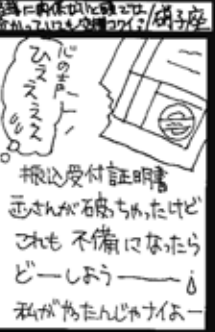 硝子座
心の声
ひええええ
振込受付証明書
正さんが破っちゃったけど
これも 不備になったら
どーしよう――
私がやったんじゃナイよー